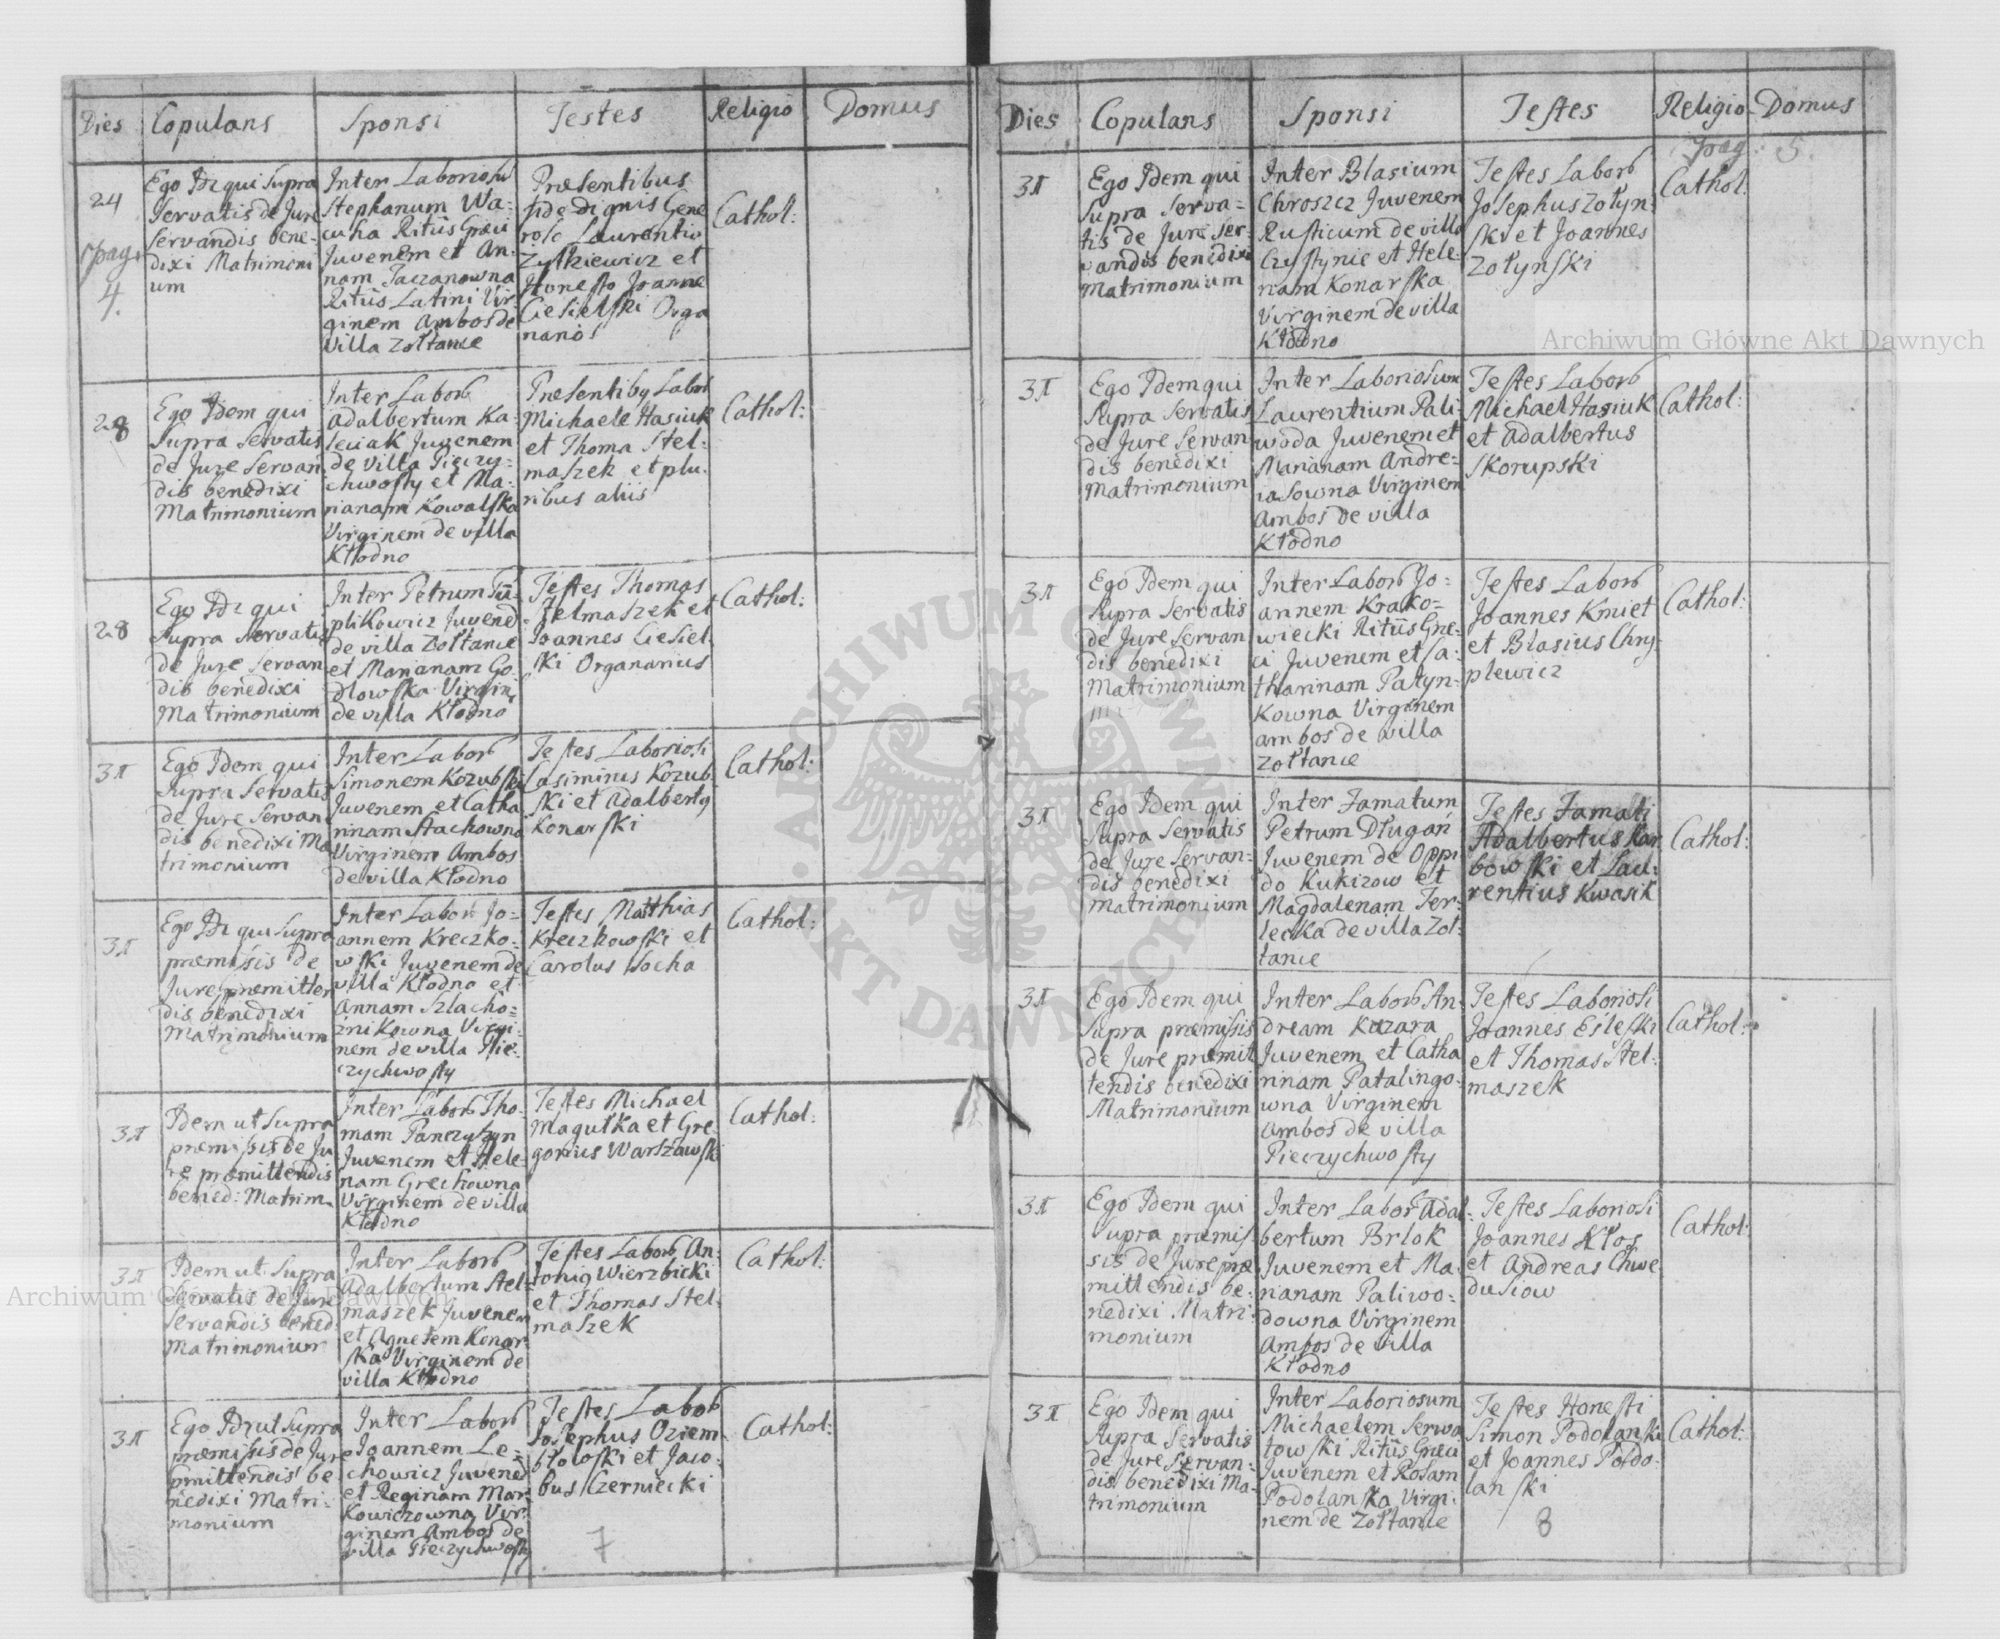 Dies Copulans Sponsi Testes Religio Domus
24
pag.
4.
Ego Id qui supra
servatis de Jure
servandis bene-
dixi Matrimoni
um
Inter Laboriosu
Stephanum Wa-
cuha Ritûs Græci
Juvenem et An-
nam Taczanowna
Ritûs Latini Vir
ginem Ambos de
Villa Zołtance
Præsentibus
fide dignis Gene
roso Laurentio
Zytkiewicz et
Honesto Joanne
Ciesielski Orga
nario
Cathol:
28
Ego Idem qui
Supra Servatis
de Jure Servan
dis benedixi
Matrimonium
Inter Labor
Adalbertum Ka-
leciak Juvenem
de villa Pieczy-
chwosty et Ma-
rianam Kowalska
Virginem de villa
Kłodno
Præsentibq Labor
Michaele Hasiuk
et Thoma Stel-
maszek et plu-
ribus aliis
Cathol:
28
Ego Id qui
Supra Servatis
de Jure Servan
dis benedixi
Matrimonium
Inter Petrum
plikowicz Juvene
de villa Zołtance
et Marianam Go-
dlowska Virgin
de villa Kłodno
Testes Thomas
Stelmaszek et
Joannes Ciesiel
ski Organarius
Cathol:
31
Ego Idem qui
Supra Servatis
de Jure Servan
dis benedixi Ma
trimonium
Inter Labor
Simonem Kozubski
Juvenem et Catha
rinam Stachowna
Virginem Ambos
de villa Kłodno
Testes Laboriosi
Casimirus Kozub
ski et Adalbertq
Konarski
Cathol:
31
Ego Id qui Supra
præmissis de
Jure præmitten
dis benedixi
Matrimonium
Inter Labor Jo-
annem Kreczko-
wski Juvenem de
villa Kłodno et
Annam Szlacho-
znikowna Virgi-
nem de villa Pie-
czychwosty
Testes Matthias
Kreczkowski et
Carolus Socha
Cathol:
31
Idem ut Supra
præmissis de Ju
re præmittendis
bened: Matrim.
Inter Labor Tho-
mam Panczyszyn
Juvenem et Hele-
nam Grechowna
Virginem de villa
Kłodno
Testes Michael
Magulka et Gre
gorius Warszawski
Cathol:
31
Idem ut Supra
Servatis de Jure
Servandis bened:
Matrimonium
Inter Labor
Adalbertum Stel-
maszek Juvenem
et Agnetem Konar
ska Virginem de
villa Kłodno
Testes Labor An-
toniq Wierzbicki
et Thomas Stel-
maszek
Cathol:
31
Ego Id ut Supra
præmissis de Jure
pmittendis be
nedixi Matri-
monium
Inter Labor
Joannem Le-
chowicz Juvene
et Reginam Mar
kowiczowna Vir-
ginem Ambos de
villa Pieczychwosty
Testes Labor
Josephus Oziem
błoloski et Jaco-
bus Czerniecki
Cathol:
7
Dies Copulans Sponsi Testes Religio Domus
pag. 5.
31
Ego Idem qui
Supra Serva-
tis de Jure Ser-
vandis benedixi
Matrimonium
Inter Blasium
Chroszcz Juvenem
Rusticum de villa
Czystynie et Hele-
nam Konarska
Virginem de villa
Kłodno
Testes Labor
Josephus Zołyn-
ski et Joannes
Zołynski
Cathol:
31
Ego Idem qui
Supra Servatis
de Jure Servan
dis benedixi
Matrimonium
Inter Laboriosum
Laurentium Pali
woda Juvenem et
Marianam Andre-
iasowna Virginem
Ambos de villa
Kłodno
Testes Labor
Michael Hasiuk
et Adalbertus
Skorupski
Cathol:
31
Ego Idem qui
Supra Servatis
de Jure Servan
dis benedixi
Matrimonium
Inter Labor Jo-
annem Krako-
wiecki Ritûs Græ-
ci Juvenem et Ca-
tharinam Patyn-
kowna Virginem
ambos de villa
Zołtance
Testes Labor
Joannes Kmiet
et Blasius Chry
plewicz
Cathol:
31
Ego Idem qui
Supra Servatis
de Jure Servan-
dis benedixi
Matrimonium
Inter Famatum
Petrum Długań
Juvenem de Oppi
do Kukizow et
Magdalenam Ter-
lecka de villa Zoł-
tance
Testes Famati
Adalbertus Kar
bowski et Lau-
rentius Kwasik
Cathol:
31
Ego Idem qui
Supra præmissis
de Jure præmit
tendis benedixi
Matrimonium
Inter Labor An-
dream Kuzara
Juvenem et Catha
rinam Patalingo-
wna Virginem
Ambos de villa
Pieczychwosty
Testes Laboriosi
Joannes Eiselski
et Thomas Stel-
maszek
Cathol:
31
Ego Idem qui
Supra præmis
sis de Jure præ
mittendis be-
nedixi Matri-
monium
Inter Labor Adal-
bertum Brlok
Juvenem et Ma-
rianam Paliwo-
downa Virginem
Ambos de villa
Kłodno
Testes Laboriosi
Joannes Kłos
et Andreas Chwe
dusiow
Cathol:
31
Ego Idem qui
Supra Servatis
de Jure Servan-
dis benedixi Ma-
trimonium
Inter Laboriosum
Michaelem Serwa
towski Ritûs Græci
Juvenem et Rosam
Podolanska Virgi-
nem de Zołtance
Testes Honesti
Simon Podolanski
et Joannes Podo-
lanski
Cathol:
8
Archiwum Główne Akt Dawnych
Archiwum Główne Akt Dawnych
ARCHIWUM GŁÓWNE AKT DAWNYCH